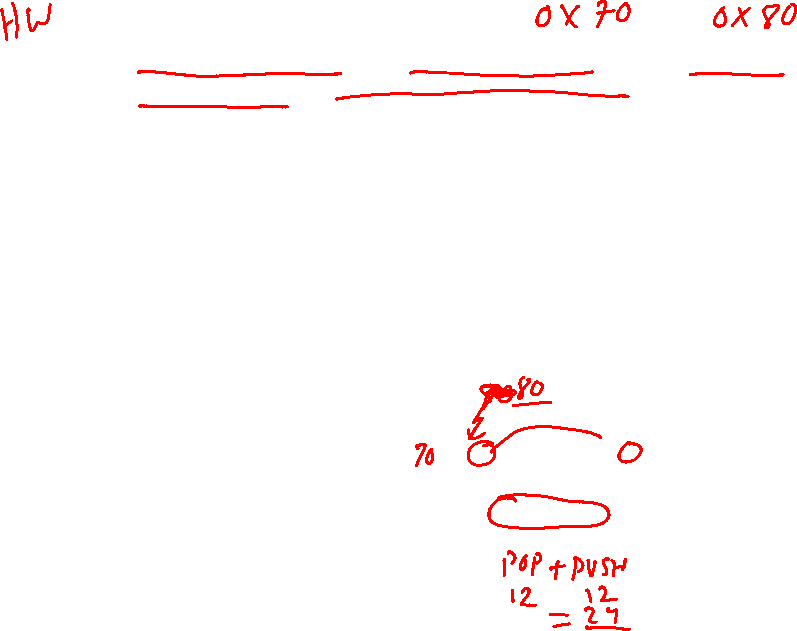 HW 0X70 0X80
80
70
POP + PUSH
12 12
= 24